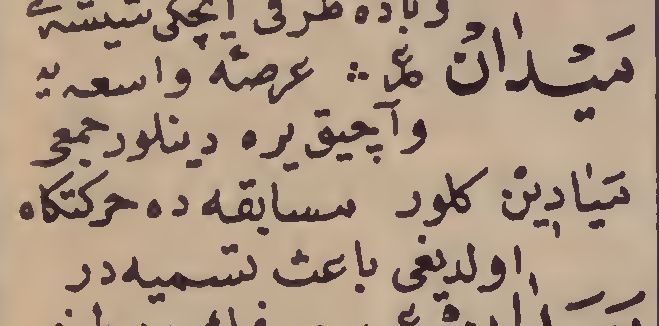 وباده ظرفی ایچكی شیشه
مَیْدَانْ ع عرصهٔ واسعه یه
وآچیق یره دینلور جمعی
مَیَادِینْ كلور مسابقه ده حركتكاه
اولدیغی باعث تسمیه در